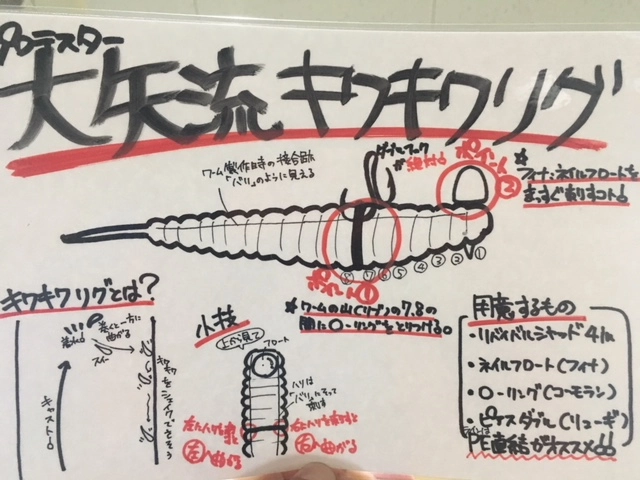 プロテスター
大矢流 キワキワリグ
ワーム製作時の接合部
「バリ」のように見える
ダブルフック
絶対
ポイント
②
※
フィナ:ネイルフロートを
まっすぐ刺すコト!
⑧ ⑦ ⑥ ⑤ ④ ③ ② ①
ポイント①
※ワームの山(リブ)の7,8の
間にO-リングをとりつける。
キワキワリグとは?
着水!
巻くと一方に
曲がる
スィー
キャスト
キワキワをシェイクでさそう
小技
上から見て
フロート
ハリは
「バリ」にそって
刺す
左にハリを刺すと
左へ曲がる
右にハリを刺すと
右へ曲がる
用意するもの
・リバイバルシャッド4in
・ネイルフロート(フィナ)
・O-リング(コーモラン)
・ピアスダブル(リューギ)
ラインは
PE直結がオススメ!!